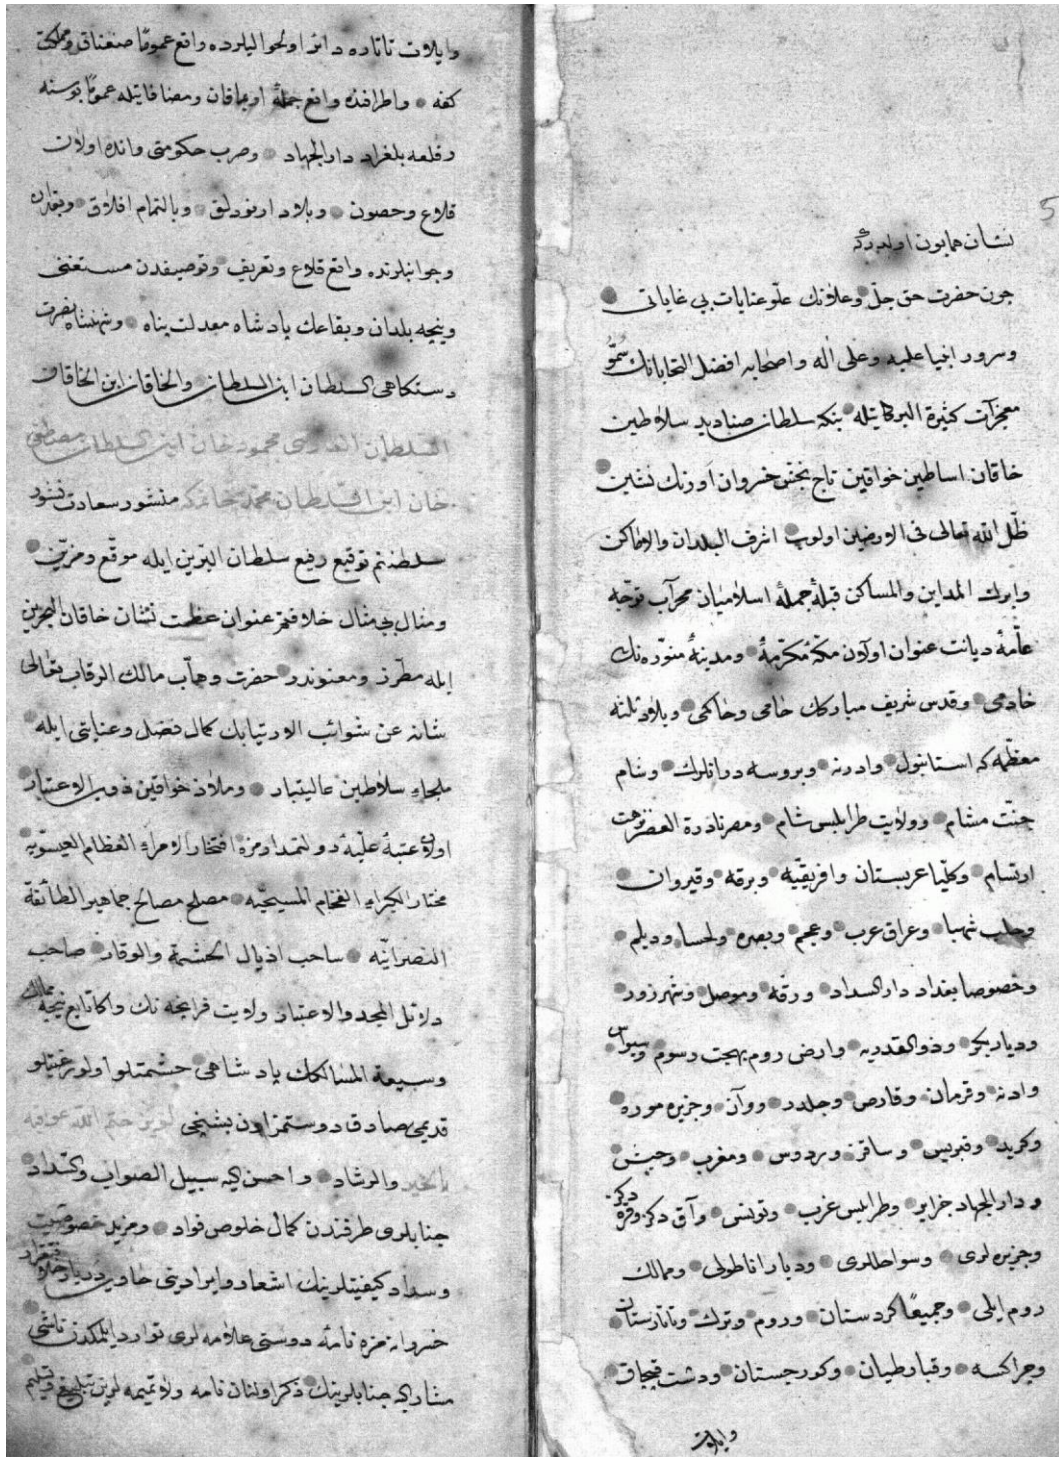 5
نشان همایون اولدر كه
چون حضرت حق جلّ وعلانك علوّ عنایات بی غایاتی
وسرور انبیا علیه وعلی اله واصحابه افضل التحایانك سموّ
معجزات كثیرة البركاتیله بنكه سلطان صنادید سلاطین
خاقان اساطین خواقین تاج بخش خسروان اورنك نشین
ظلّ الله تعالی فی الارضین اولوب اشرف البلدان والاماكن
وابرك المداین والمساكن قبلۀ جملۀ اسلامیان محرآب توجّه
عامّۀ دیانت عنوان اولان مكّۀ مكرّمۀ ومدینۀ منوّره نك
خادمی وقدس شریف مباركك حامی وحاكمی وبلاد ثلثه
معظّمه كه استانبول وادرنه وبروسه در انلرك وشام
جنّت مشام وولایت طرابلس شام ومصر نادرة العصر نزهت
ارتسام وكلّیا عربستان وافریقیّه وبرقه وقیروان
وحلب شهبا وعراق عرب وعجم وبصره ولحسا ودیلم
وخصوصا بغداد دار السداد ورقه وموصل وشهرزور
ودیاربكر وذوالقدریه وارض روم بهجت رسوم وسیواس
وادنه وقرمان وقارص وچلدر ووآن وجزیره موره
وكرید وقبریس وساقز وردوس ومغرب وحبش
ودار الجهاد جزایر وطرابلس غرب وتونس وآق دكز وقره دكز
وجزیره لری وسواحللری ودیار اناطولی وممالك
روم ایلی وجمیعًا كردستان وروم وترك وتاتارستان
وچراكسه وقبارطیان وكورجستان ودشت قپچاق
وایلات
وایلات تاتاره دائر اول حوالیلرده واقع عمومًا صغناق ومملكت
كفه واطرافنده واقع جملۀ اویماقان ومضافاتیله عمومًا بوسنه
وقلعه بلغراد دار الجهاد وصرب حكومتی وانده اولان
قلاع وحصون وبلاد ارنودلق وبالتمام افلاق وبغدان
وجوانبلرنده واقع قلاع وتعریف وتوصیفدن مستغنی
ونیجه بلدان وبقاعك پادشاه معدلت پناه وشهنشاه نصرت
دستكاهی السلطان ابن السلطان والخاقان ابن الخاقان
السلطان الغازی محمود خان ابن السلطان مصطفی
خان ابن السلطان محمد خانم كه منشور سعادت نشور
سلطنتم توقیع رفیع سلطان البرّین ایله موقّع ومزیّن
ومثال بی مثال خلافتم عنوان عظمت نشان خاقان البحرین
ایله مطرّز ومعنوندر حضرت وهّاب مالك الرقاب تعالی
شانه عن شوائب الارتیابك كمال فضل وعنایتی ایله
ملجاء سلاطین عالیتبار وملاذ خواقین ذوی الاعتبار
اولان عتبۀ علیّۀ دولتمدارمزه افتخار الامراء العظام العیسویه
مختار الكبراء الفخام المسیحیّه مصلح مصالح جماهیر الطائفة
النصرانیّه ساحب اذیال الحشمة والوقار صاحب
دلائل المجد والاعتبار ولایت فرانچه نك واكا تابع نیجه ممالك
وسیعة المسالكك پادشاهی حشمتلو اولو رغبتلو
قدیمی صادق دوستمز اون بشنجی لویز ختم الله عواقبه
بالخیر والرشاد واحسن الیه سبیل الصواب والسداد
جنابلری طرفندن كمال خلوص فواد ومزید خصوصیت
وسداد كیفیتلرینك اشعار وایرادینی حاوی دربار خلافتقرار
خسروانه مزه نامۀ دوستی علامه لری توارد ایلمكدن ناشی
مشار الیه جنابلرینك ذكر اولنان نامه ولا تمیمه لرین تبلیغ وتسلیم